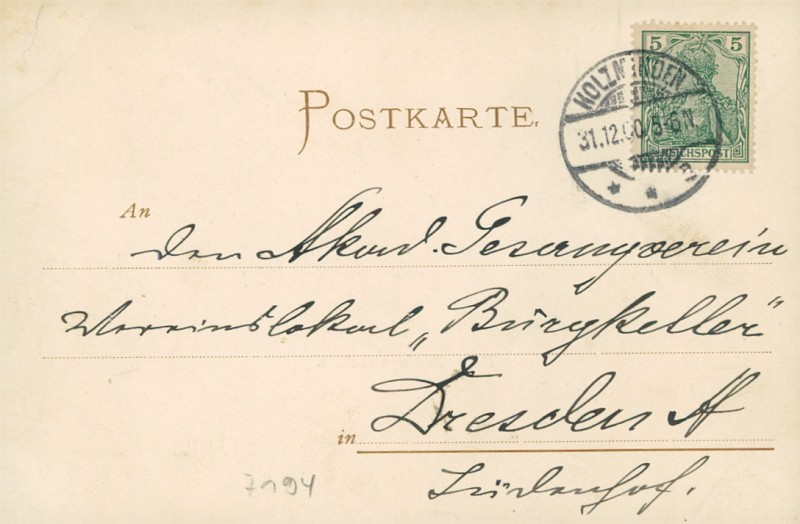 5 5
REICHSPOST
HOLZMINDEN
31.12.00. 5-6 N.
POSTKARTE.
An
den Akad. Gesangverein
Vereinslokal „Burgkeller“
in Dresden A
7194